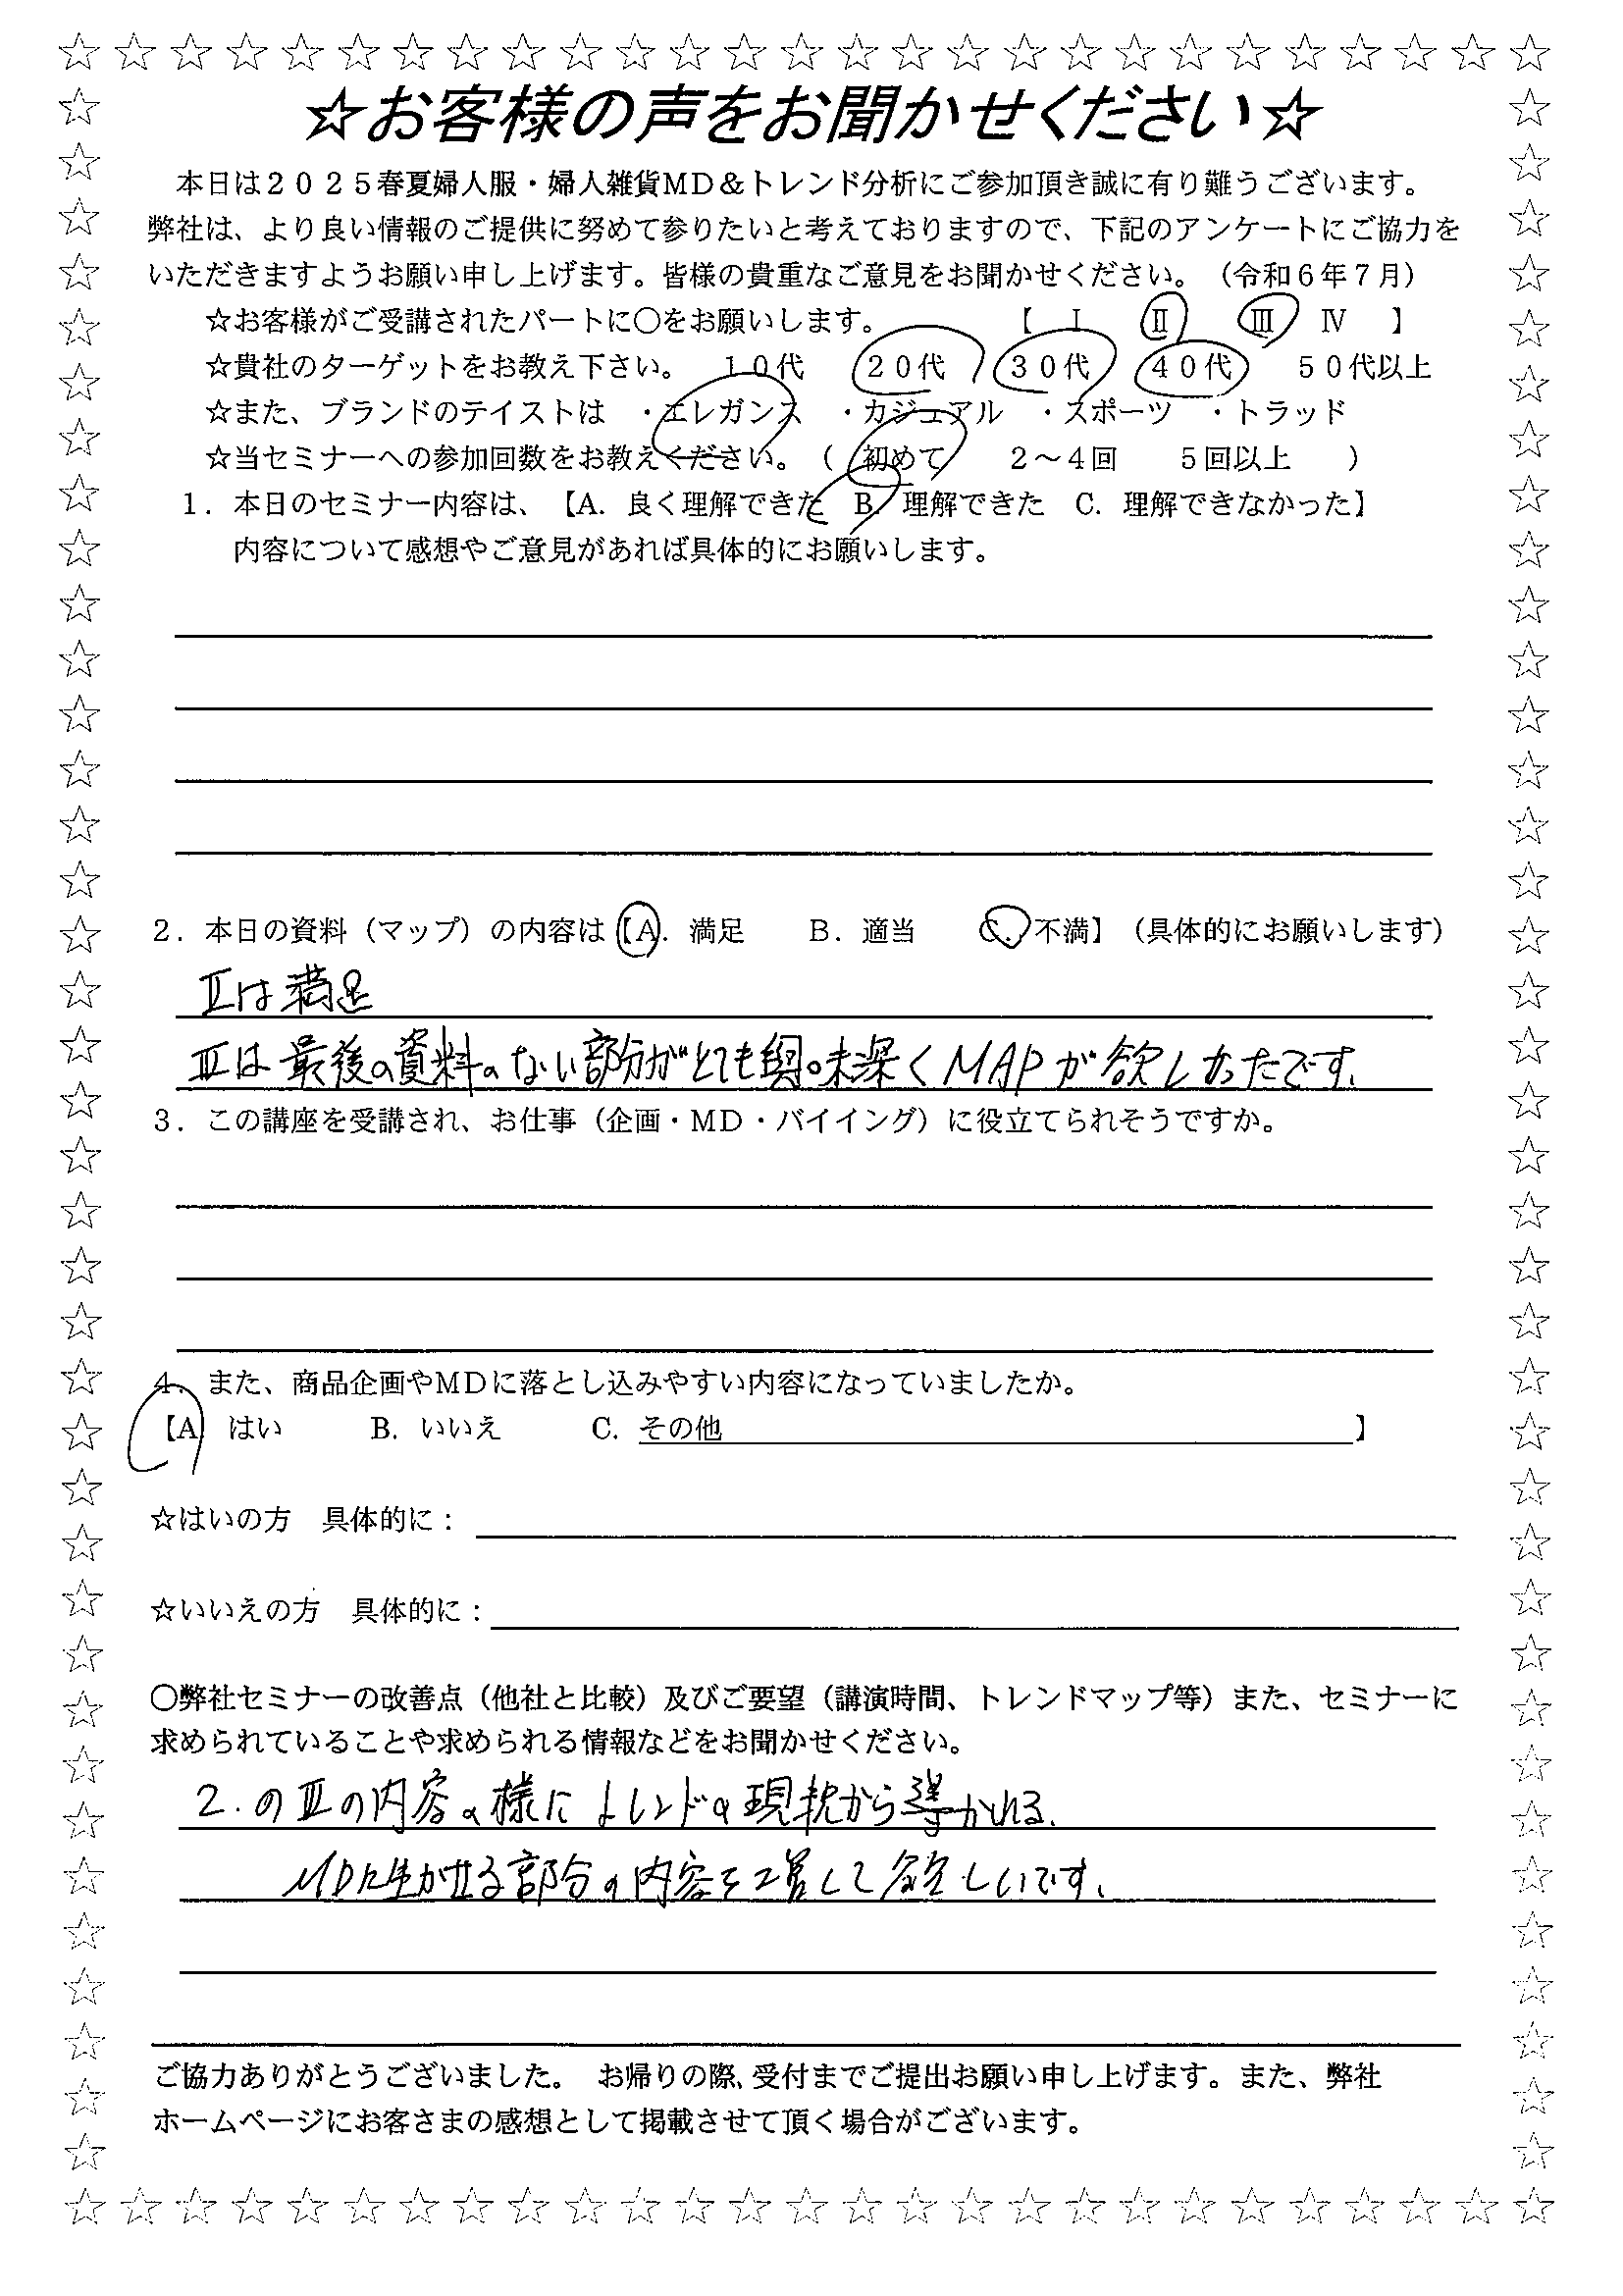 ☆お客様の声をお聞かせください☆
本日は2025春夏婦人服・婦人雑貨MD＆トレンド分析にご参加頂き誠に有り難うございます。
弊社は、より良い情報のご提供に努めて参りたいと考えておりますので、下記のアンケートにご協力を
いただきますようお願い申し上げます。皆様の貴重なご意見をお聞かせください。（令和6年7月）
☆お客様がご受講されたパートに〇をお願いします。　【　Ⅰ　Ⅱ　Ⅲ　Ⅳ　】
☆貴社のターゲットをお教え下さい。　10代　20代　30代　40代　50代以上
☆また、ブランドのテイストは　・エレガンス　・カジュアル　・スポーツ　・トラッド
☆当セミナーへの参加回数をお教えください。（　初めて　2～4回　5回以上　）
1．本日のセミナー内容は、【A．良く理解できた　B．理解できた　C．理解できなかった】
内容について感想やご意見があれば具体的にお願いします。
2．本日の資料（マップ）の内容は【A．満足　B．適当　C．不満】（具体的にお願いします）
Ⅱは満足
Ⅲは最後の資料のない部分がとても興味深くMAPが欲しかったです。
3．この講座を受講され、お仕事（企画・MD・バイイング）に役立てられそうですか。
4．また、商品企画やMDに落とし込みやすい内容になっていましたか。
【A　はい　B．いいえ　C．その他　】
☆はいの方　具体的に：
☆いいえの方　具体的に：
〇弊社セミナーの改善点（他社と比較）及びご要望（講演時間、トレンドマップ等）また、セミナーに
求められていることや求められる情報などをお聞かせください。
2．のⅢの内容の様にトレンドの現状から導かれる、
MDに生かせる部分の内容を増して欲しいです。
ご協力ありがとうございました。　お帰りの際、受付までご提出お願い申し上げます。また、弊社
ホームページにお客さまの感想として掲載させて頂く場合がございます。